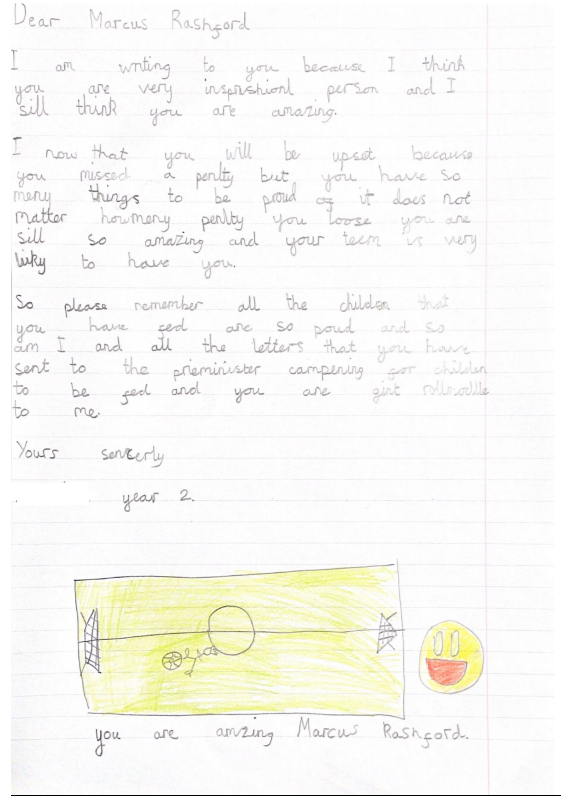 Dear Marcus Rashford
I am writing to you because I think
you are very inspirshionl person and I
sill think you are amazing.
I now that you will be upset because
you missed a penlty but you have so
meny things to be proud of it does not
matter howmeny penlty you loose you are
sill so amazing and your teem is very
luky to have you.
So please remember all the children that
you have fed are so poud and so
am I and all the letters that you have
sent to the prieminister campening for children
to be fed and you are girt rollmodle
to me.
Yours sencerly
year 2.
you are amzing Marcus Rashford.